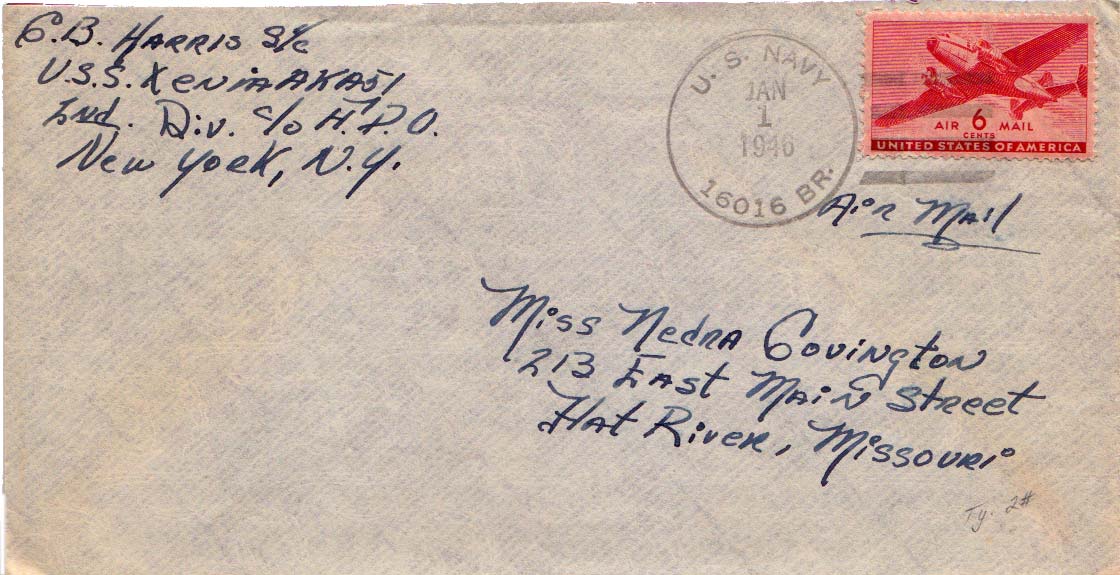 C.B. HARRIS S1/c
U.S.S. Xenia AKA51
2nd. Div. c/o F.P.O.
New York, N.Y.
U. S. NAVY
JAN
1
1946
16016 BR.
AIR 6 MAIL
CENTS
UNITED STATES OF AMERICA
Air Mail
Miss Nedra Covington
213 East Main Street
Flat River, Missouri
Ty. 2#